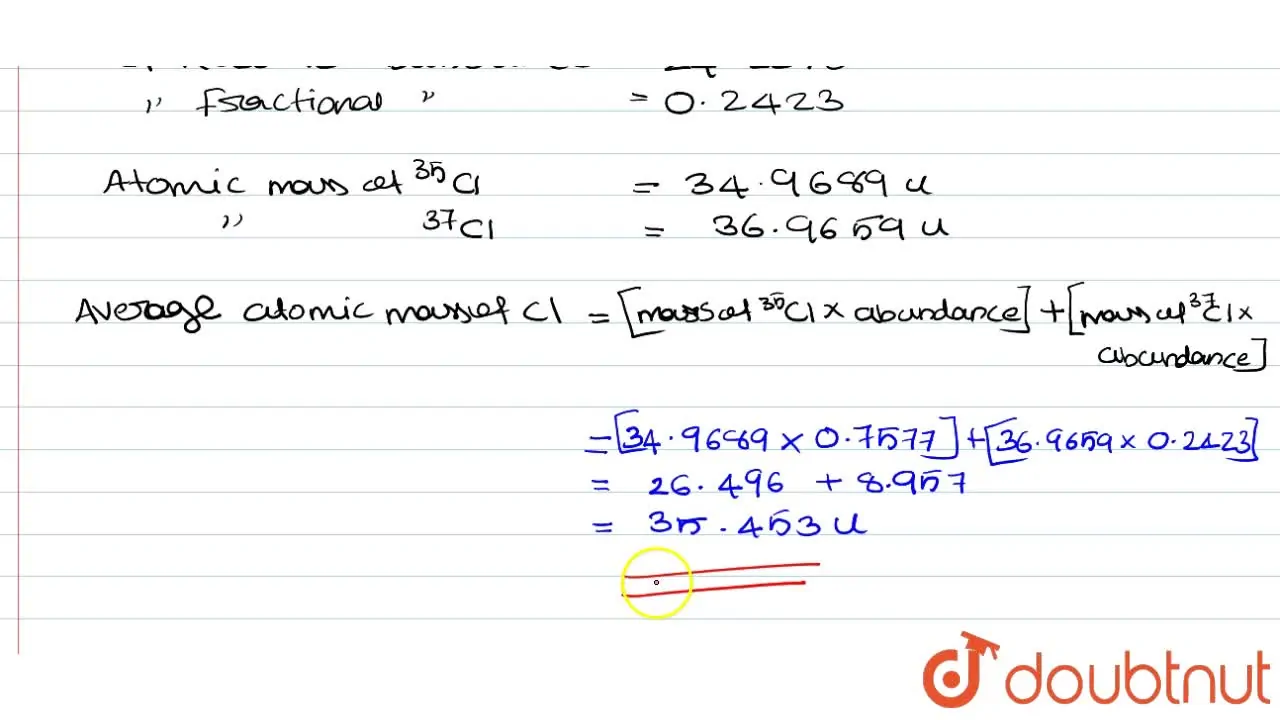 〃 fractional 〃 = 0.2423
Atomic mass of ³⁵Cl = 34.9689 u
〃 ³⁷Cl = 36.9659 u
Average atomic mass of Cl = [mass of ³⁵Cl × abundance] + [mass of ³⁷Cl ×
abundance]
= [34.9689 × 0.7577] + [36.9659 × 0.2423]
= 26.496 + 8.957
= 35.453 u
doubtnut